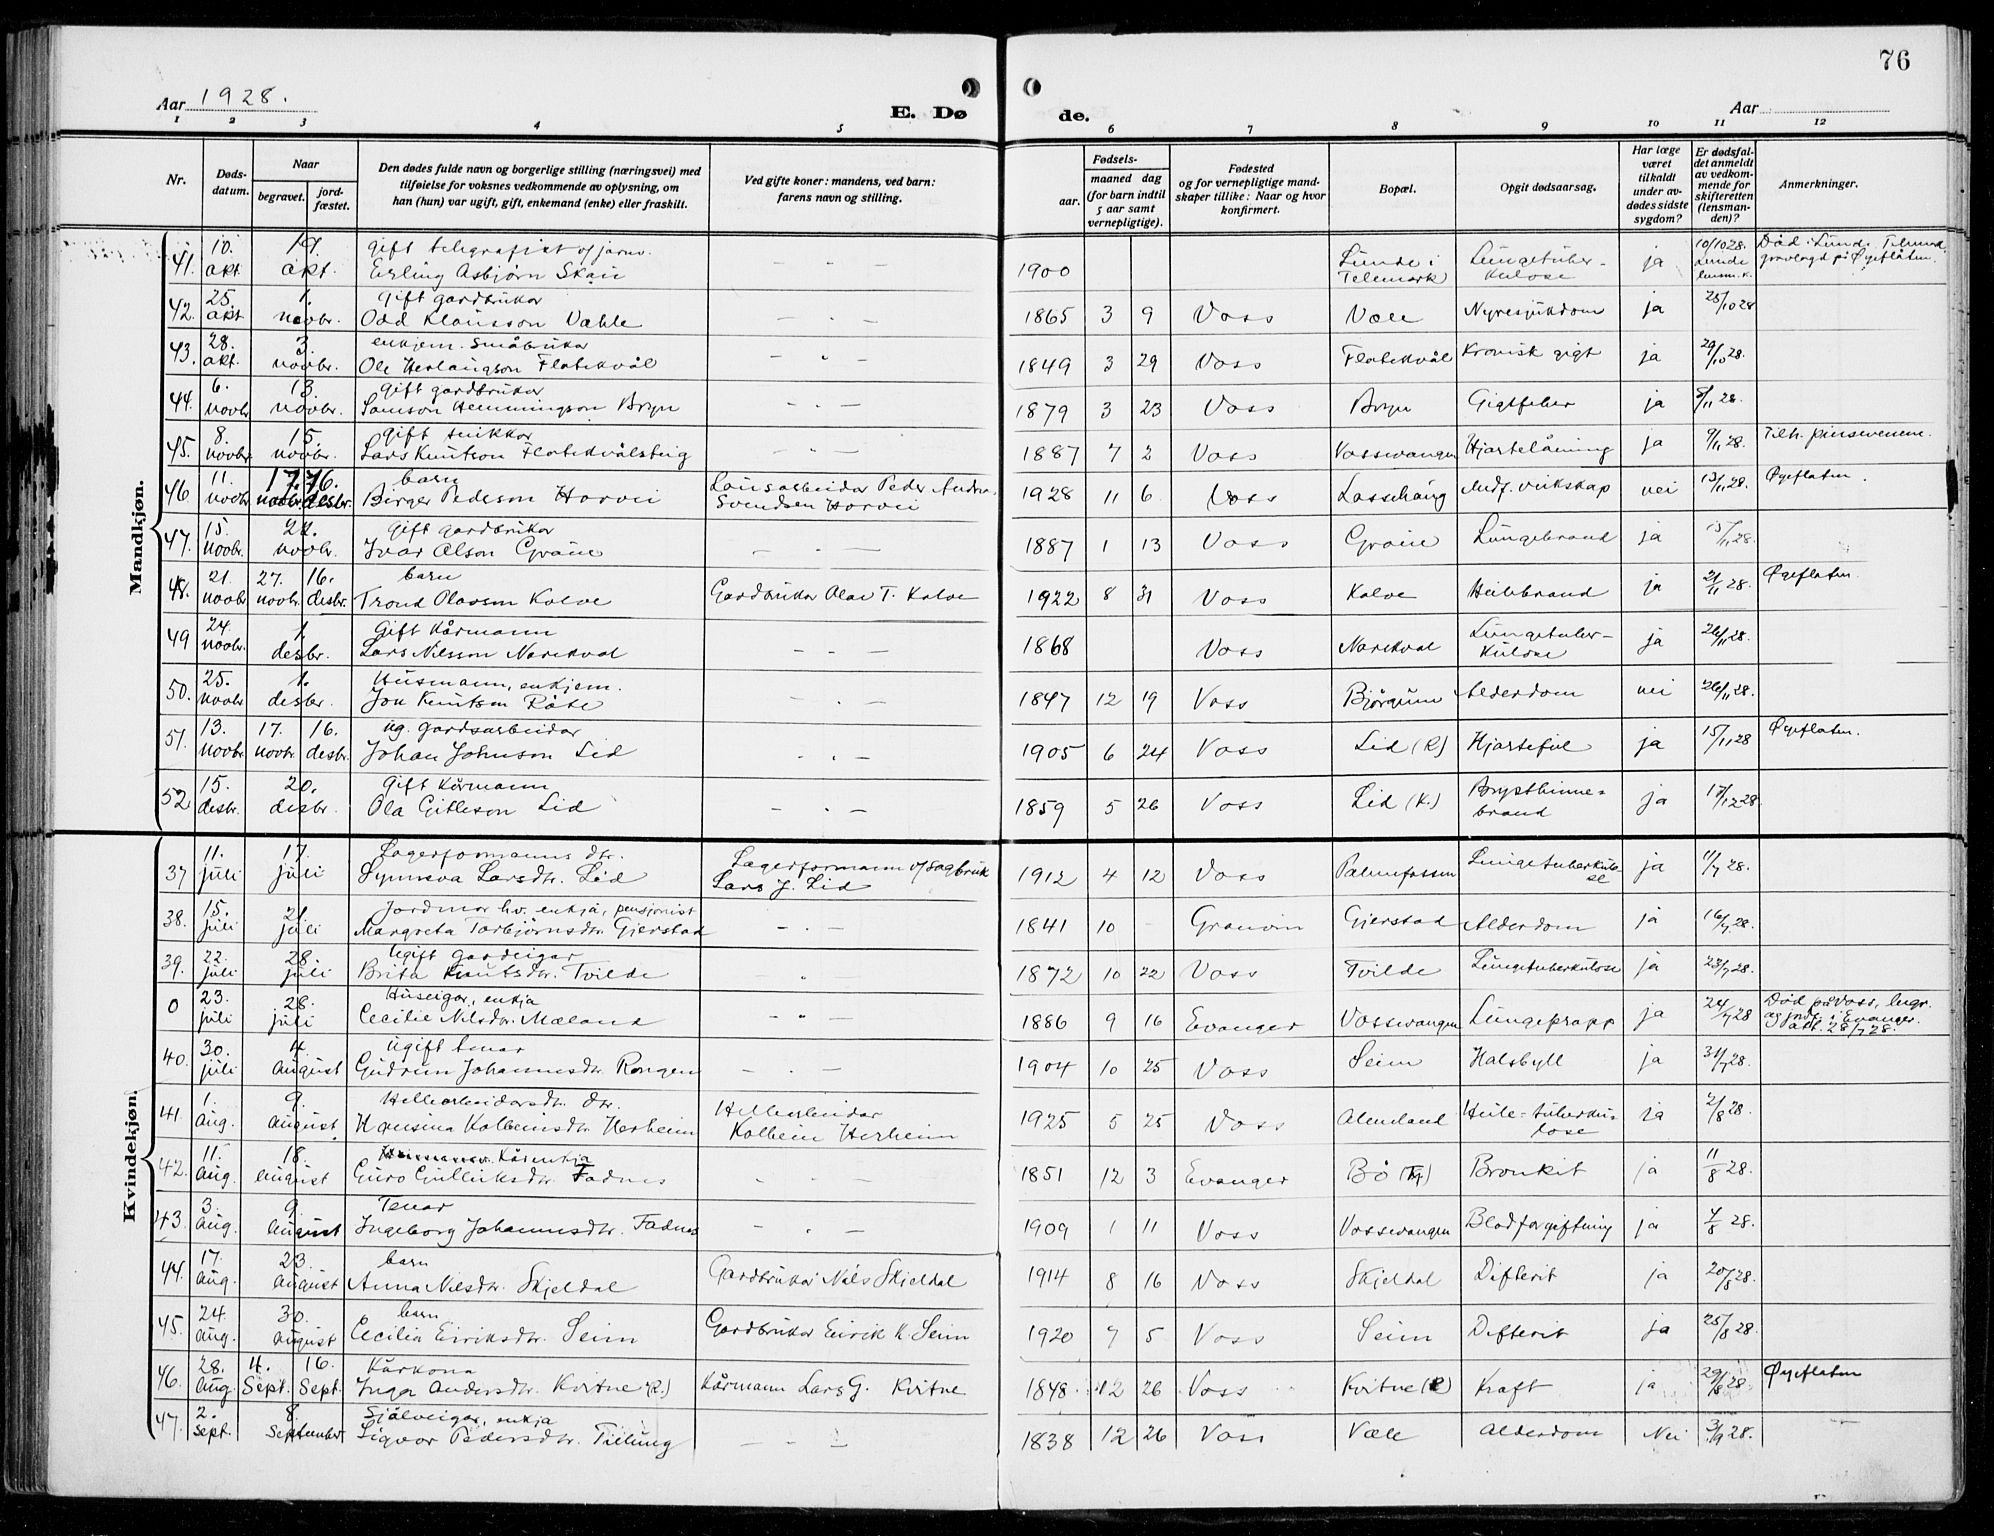 76
Aar 1928.
E. Dø
de.
Aar
1 2 3 4 5 6 7 8 9 10 11 12
Nr.
Døds-
datum.
Naar
begravet.
jord-
fæstet.
Den dødes fulde navn og borgerlige stilling (næringsvei) med
tilføielse for voksnes vedkommende av oplysning, om
han (hun) var ugift, gift, enkemand (enke) eller fraskilt.
Ved gifte koner: mandens, ved barn:
farens navn og stilling.
Fødsels-
aar.
maaned dag
(for barn indtil
5 aar samt
vernepligtige).
Fødested
og for vernepligtige mand-
skaper tillike: Naar og hvor
konfirmert.
Bopæl.
Opgit dødsaarsag.
Har læge
været
tilkaldt
under av-
dødes sidste
sygdom?
Er dødsfal-
det anmeldt
av vedkom-
mende for
skifteretten
(lensman-
den)?
Anmerkninger.
Mandkjøn.
10. 17. Gift telegrafist v/ jarnv. Lunde i Lungetuber- 10/10 28. Død i Lunde Telemark
41. okt. okt. Erling Asbjørn Skau 1900 Telemark kulose ja Lunde lensm.k. gravlagd på Øyeflåten.
25. 1. Gift gardbrukar
42. okt novbr. Odd Klausson Væhle 1865 3 9 Voss Væle Nyresjukdom ja 25/10 28
28. 3. enkjem. Småbrukar
43. okt. novbr. Ole Herlaugson Flatekvål 1849 3 29 Voss Flatekvål Kronisk gigt ja 29/10 28.
6. 13. Gift gardbrukar
44. novbr. novbr. Samson Hemmingson Bryn 1879 3 23 Voss Bryn Gigtfeber ja 8/11 28.
8. 15. Gift snikkar
45. novbr. novbr. Lars Knutson Flatekvålsteig 1887 7 2 Voss Vossevangen Hjartelåming ja 9/11 28. Tilh. pinsevenene.
11. 17. 16. barn Lausarbeidar Peder Andrea.
46 novbr. novbr. desbr. Birger Pederson Horvei Svendsen Horvei 1928 11 6 Voss Lassehaug Medf. veikskap nei 13/11 28. Øyeflaten.
15. 22. Gift gardbrukar
47. novbr. novbr. Ivar Olson Graue 1887 1 13 Voss Graue Lungebrand ja 15/11 28.
21. 27. 16. barn
48. novbr novbr. desbr. Trond Olavson Kolve Gardbrukar Olav T. Kolve 1922 8 31 Voss Kolve Heilebrand ja 21/11 28. Øyeflaten.
24. 1. Gift Kårmann Lungetuber-
49 novbr. desbr. Lars Nilsson Narekval 1868 Voss Narekval kulose ja 26/11 28.
25. 1. Husmann, enkjem.
50. novbr desbr. Jon Knutson Røte 1847 12 19 Voss Bjørgum Alderdom nei 26/11 28.
13. 17. 16. ug. gardsarbeidar
51. novbr. novbr. desbr. Johan Johnson Lid 1905 6 24 Voss Lid (R) Hjartefeil ja 15/11 28 Øyeflaten.
15. 20. Gift kårmann Brysthinne-
52 desbr. desbr. Ola Gitleson Lid 1859 5 26 Voss Lid (K.) brand ja 17/12 28
Kvindekjøn.
11. 17. Lagerformanns dtr. Lagerformann v/ sagbruk
37 juli juli Synneva Larsdtr. Lid Lars J. Lid 1912 4 12 Voss Palmafossen Lungetuberkulose ja 11/7 28.
15. 21. Jordmor hv. enkja, pensjonist
38. juli juli Margreta Torbjørnsdtr. Gjerstad 1841 10 Granvin Gjerstad Alderdom ja 16/7 28.
22. 28. Ugift gardeigar
39. juli juli Brita Knutsdtr. Tvilde 1872 10 22 Voss Tvilde Lungetuberkulose ja 23/7 28.
23. 28. Huseigar, enkja Død på Voss, begr.
0 juli juli Cecilie Nilsdtr. Mæland 1886 9 16 Evanger Vossevangen Lungepropp ja 24/7 28 og jordf. i Evanger. att. 28/7 28.
30. 4. Ugift tenar
40. juli August Gudrun Johannesdtr. Rongen 1904 10 25 Voss Seim Halsbyll ja 31/7 28.
1. 9. Hellearbeidarsdtr. dtr. Hellearbeidar
41. Aug. August Hansina Kolbeinsdtr. Herheim Kolbein Herheim 1925 5 25 Voss Almeland Heile-tuberkulose ja 2/8 28.
11. 18. Kårenkja
42. Aug. August Guro Gulleiksdtr. Fadnes 1851 12 3 Evanger Bø Bronkit ja 11/8 28.
3. 9. Tenar
43. Aug. August Ingeborg Johannesdtr. Fadnes 1909 1 11 Voss Vossevangen Blodforgiftning ja 4/8 28.
17. 23. barn
44. Aug. August Anna Nilsdtr. Skjeldal Gardbrukar Nils Skjeldal 1914 8 16 Voss Skjeldal Difterit ja 20/8 28.
24. 30. barn
45. Aug. August Cecilia Eiriksdtr. Seim Gardbrukar Eirik K. Seim 1920 7 5 Voss Seim Difterit ja 25/8 28.
28. 4. 16. Kårkona
46. Aug. Sept. Sept. Inga Andersdtr. Kvitne (R.) Kårmann Lars G. Kvitne 1848. 12 26 Voss Kvitne (R) Kraft ja 29/8 28. Øyeflaten
2. 8. Sjølveigar, enkja
47. Sept. September Sigvor Pedersdtr. Tillung 1838 12 26 Voss Væle Alderdom Nei 3/9 28.